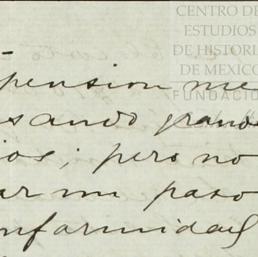 CENTRO DE
ESTUDIOS
DE HISTORIA
DE MEXICO
FUNDACIÓ
pension me
sando grand
ios; pero no
ar un paso
nformidad